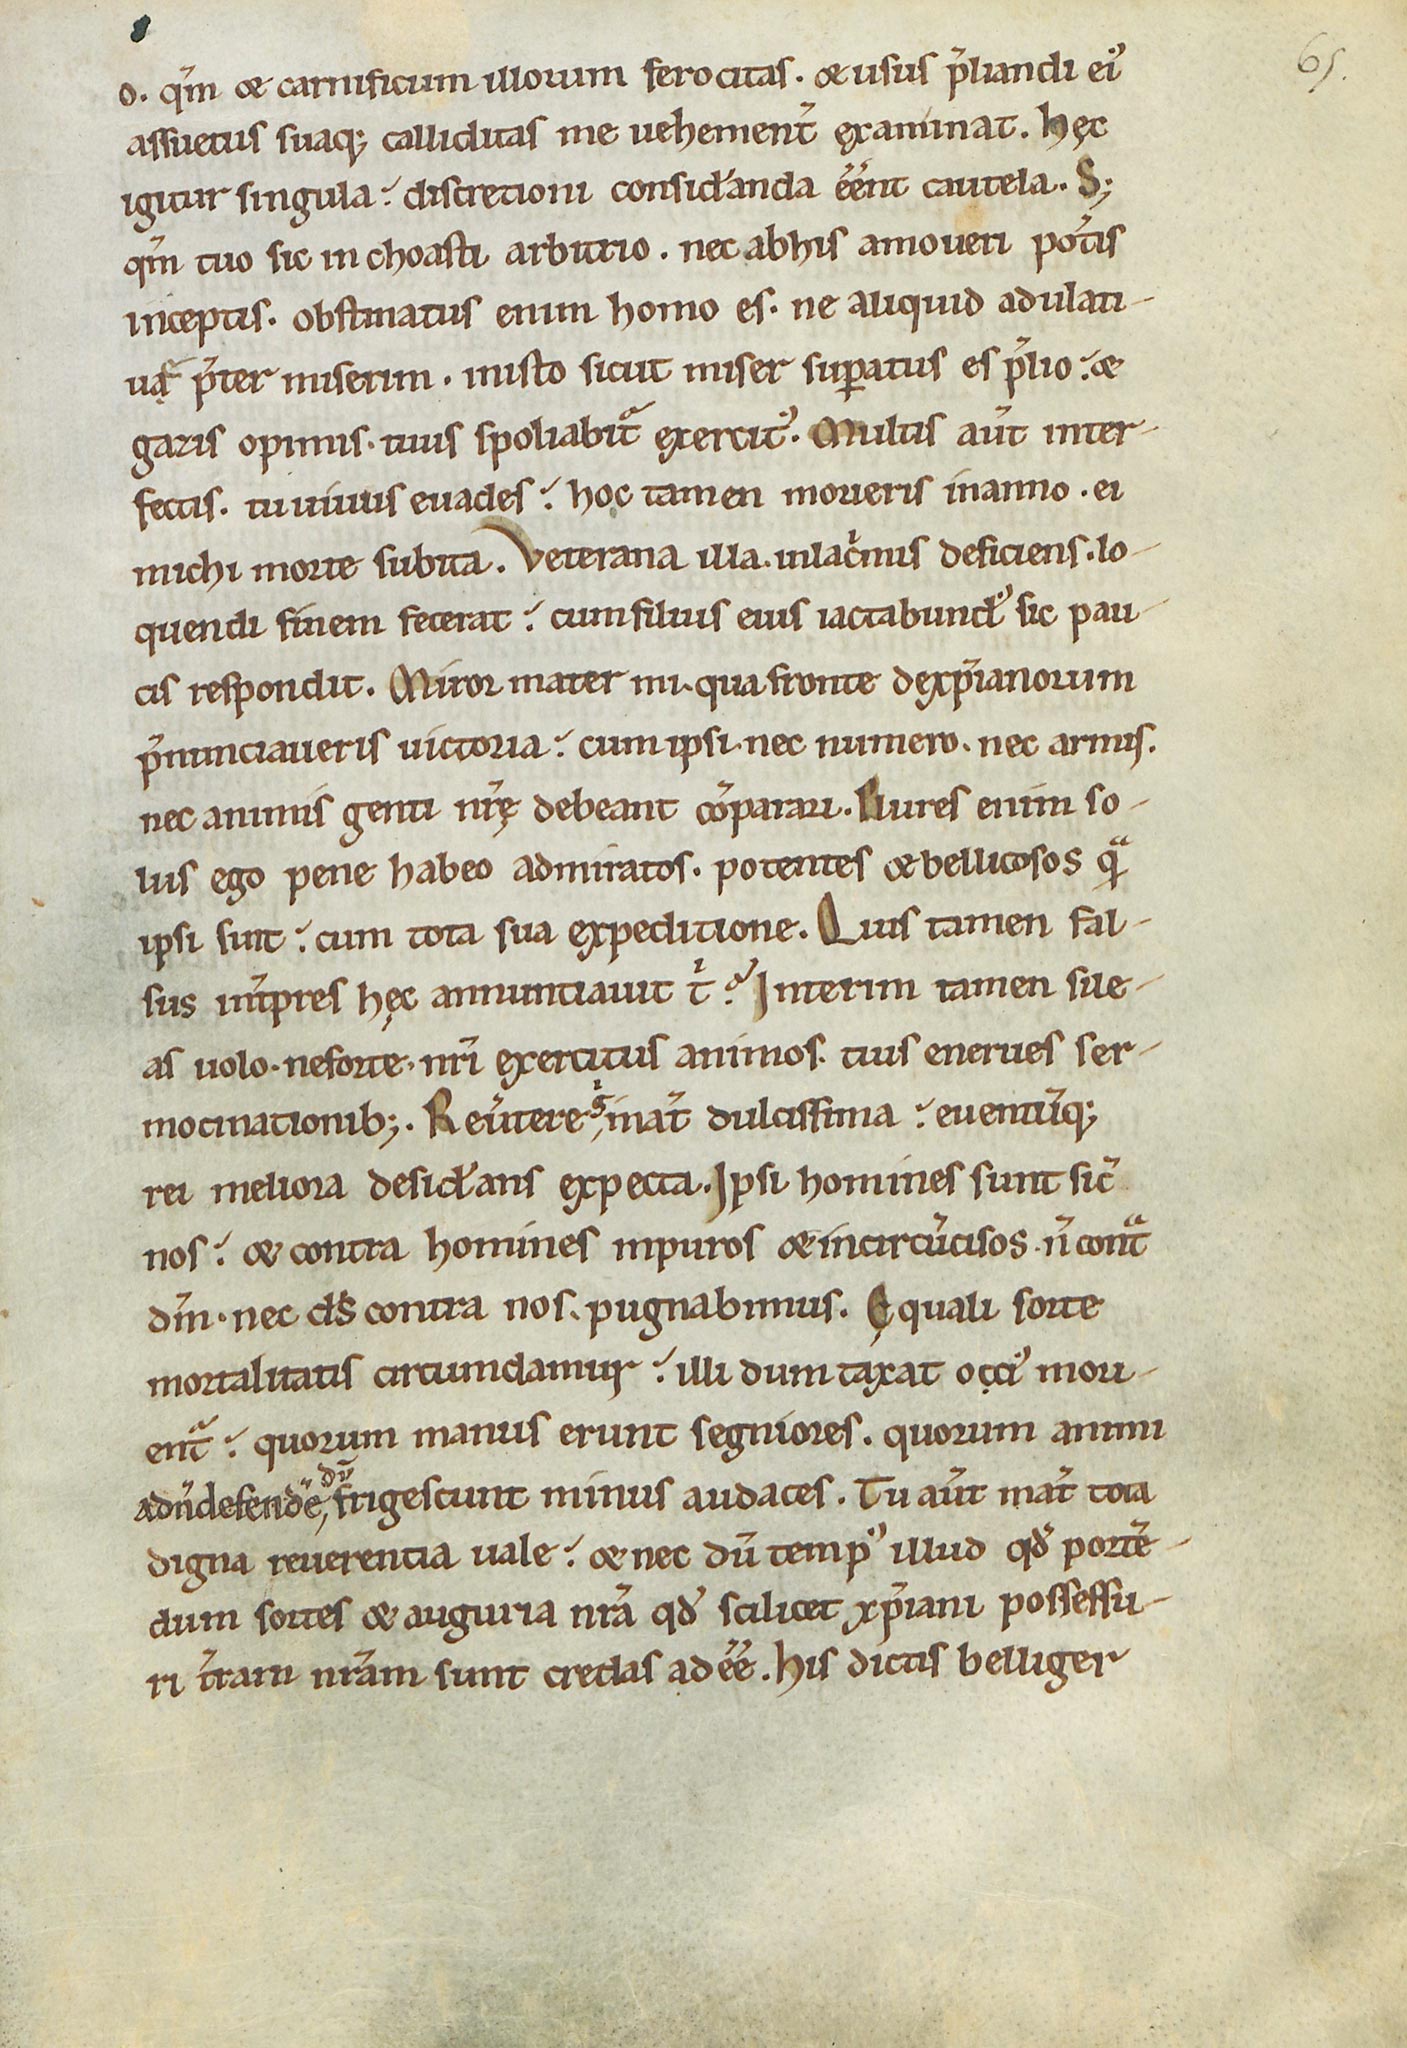 65.
o. qm̄ & carnificum illorum ferocitas. & usus p̄liandi ei᷒
assuetus suaq; calliditas me uehement̄ examinat. hęc
igitur singula. discretioni consid̄anda ēēnt cautela. S;
qm̄ tuo sic inchoasti arbitrio. nec abhis amoueri pot̄is
inceptis. obstinatus enim homo es. ne aliquid adulati-
uą p̄ter miserim. inisto sicut miser supatus es p̄lio. &
garis opimis. tuus spoliabit̄ exercit᷒. Multis aūt inter-
fectis. tu uiuus euades. hoc tamen moueris inanno. ei
michi morte subita. Veterana illa. inlac̄mis deficiens. lo-
quendi finem fecerat. cum filius eius iactabund᷒ sic pau-
cis respondit. Miror mater mi. qua fronte dexp̄ianorum
p̄nunciaueris uictoria. cum ipsi. nec numero. nec armis.
nec animis genti nr̄ę debeant cōparari. Plures enim so-
lus ego pene habeo admiratos. potentes & bellicosos qͣ
ipsi sunt. cum tota sua expeditione. Quis tamen fal-
sus int̄pres hęc annuntiauit tⁱ. Interim tamen sile-
as uolo. neforte. nr̄i exercitus animos. tuis enerues ser-
mocinationib;. Reūtere gⁱ mat̄ dulcissima. euentūq;
rei meliora desid̄ans expecta. Ipsi homines sunt sic̄
nos. & contra homines inpuros & incircūcisos. n̄ contͣ
dm̄. nec ds̄ contra nos. pugnabimus. Ęquali sorte
mortalitatis circumdamur. illi dum taxat occi᷒ mori-
ent̄. quorum manus erunt segniores. quorum animi
adn̄defendē, dū frigescunt minus audaces. Tu aūt mat̄ tota
digna reuerentia uale. & nec dū temp᷒ illud qd̄ portē-
dum sortes & auguria nr̄a qd̄ scilicet xp̄iani possessu-
ri t̄ram nr̄am sunt credas adēē. his dictis belliger